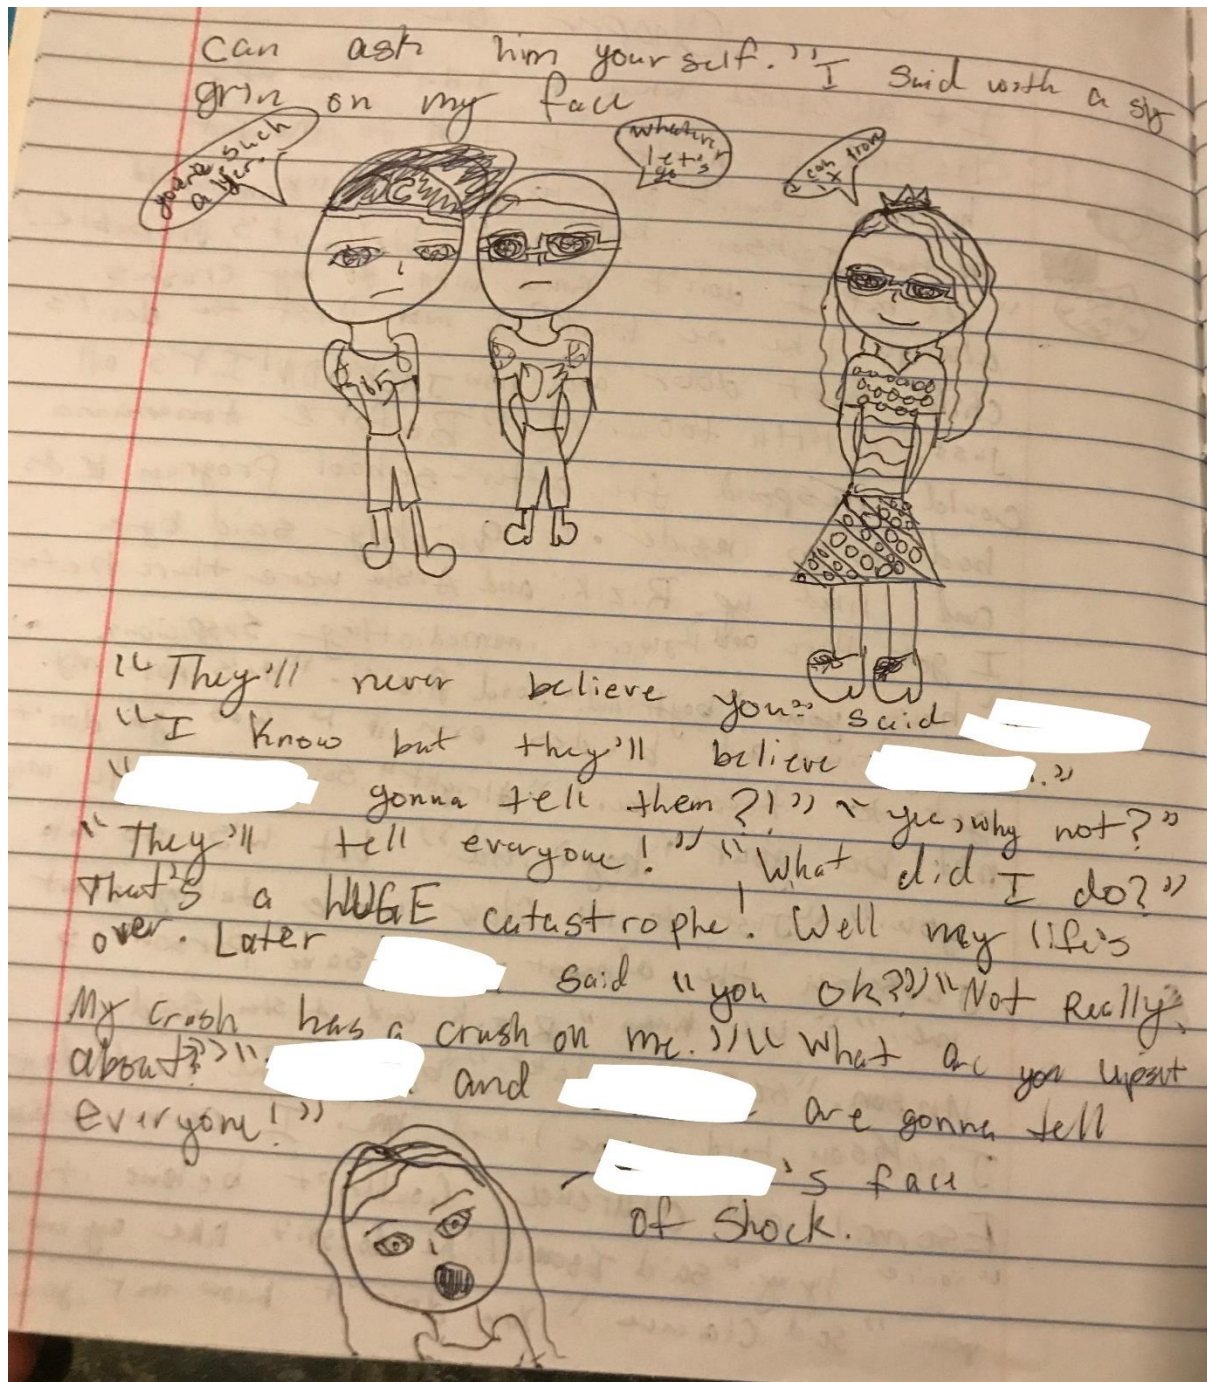 can ask him yourself." I said with a sly
grin on my face
you're such
a lyer.
whatever
let's
go
They'll never believe you" said
"I know but they'll believe ."
" gonna tell them?!" "Yes, why not?"
"They'll tell everyone!" "What did I do?"
That's a HUGE catastrophe! Well my life's
over. Later said "you ok?" "Not Really,
My crush has a crush on me." "What are you upset
about?" " and are gonna tell
everyone!"
's face
of shock.